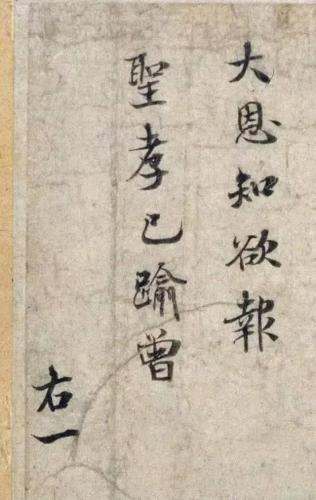 大恩知欲報
聖孝已踰曽
右一